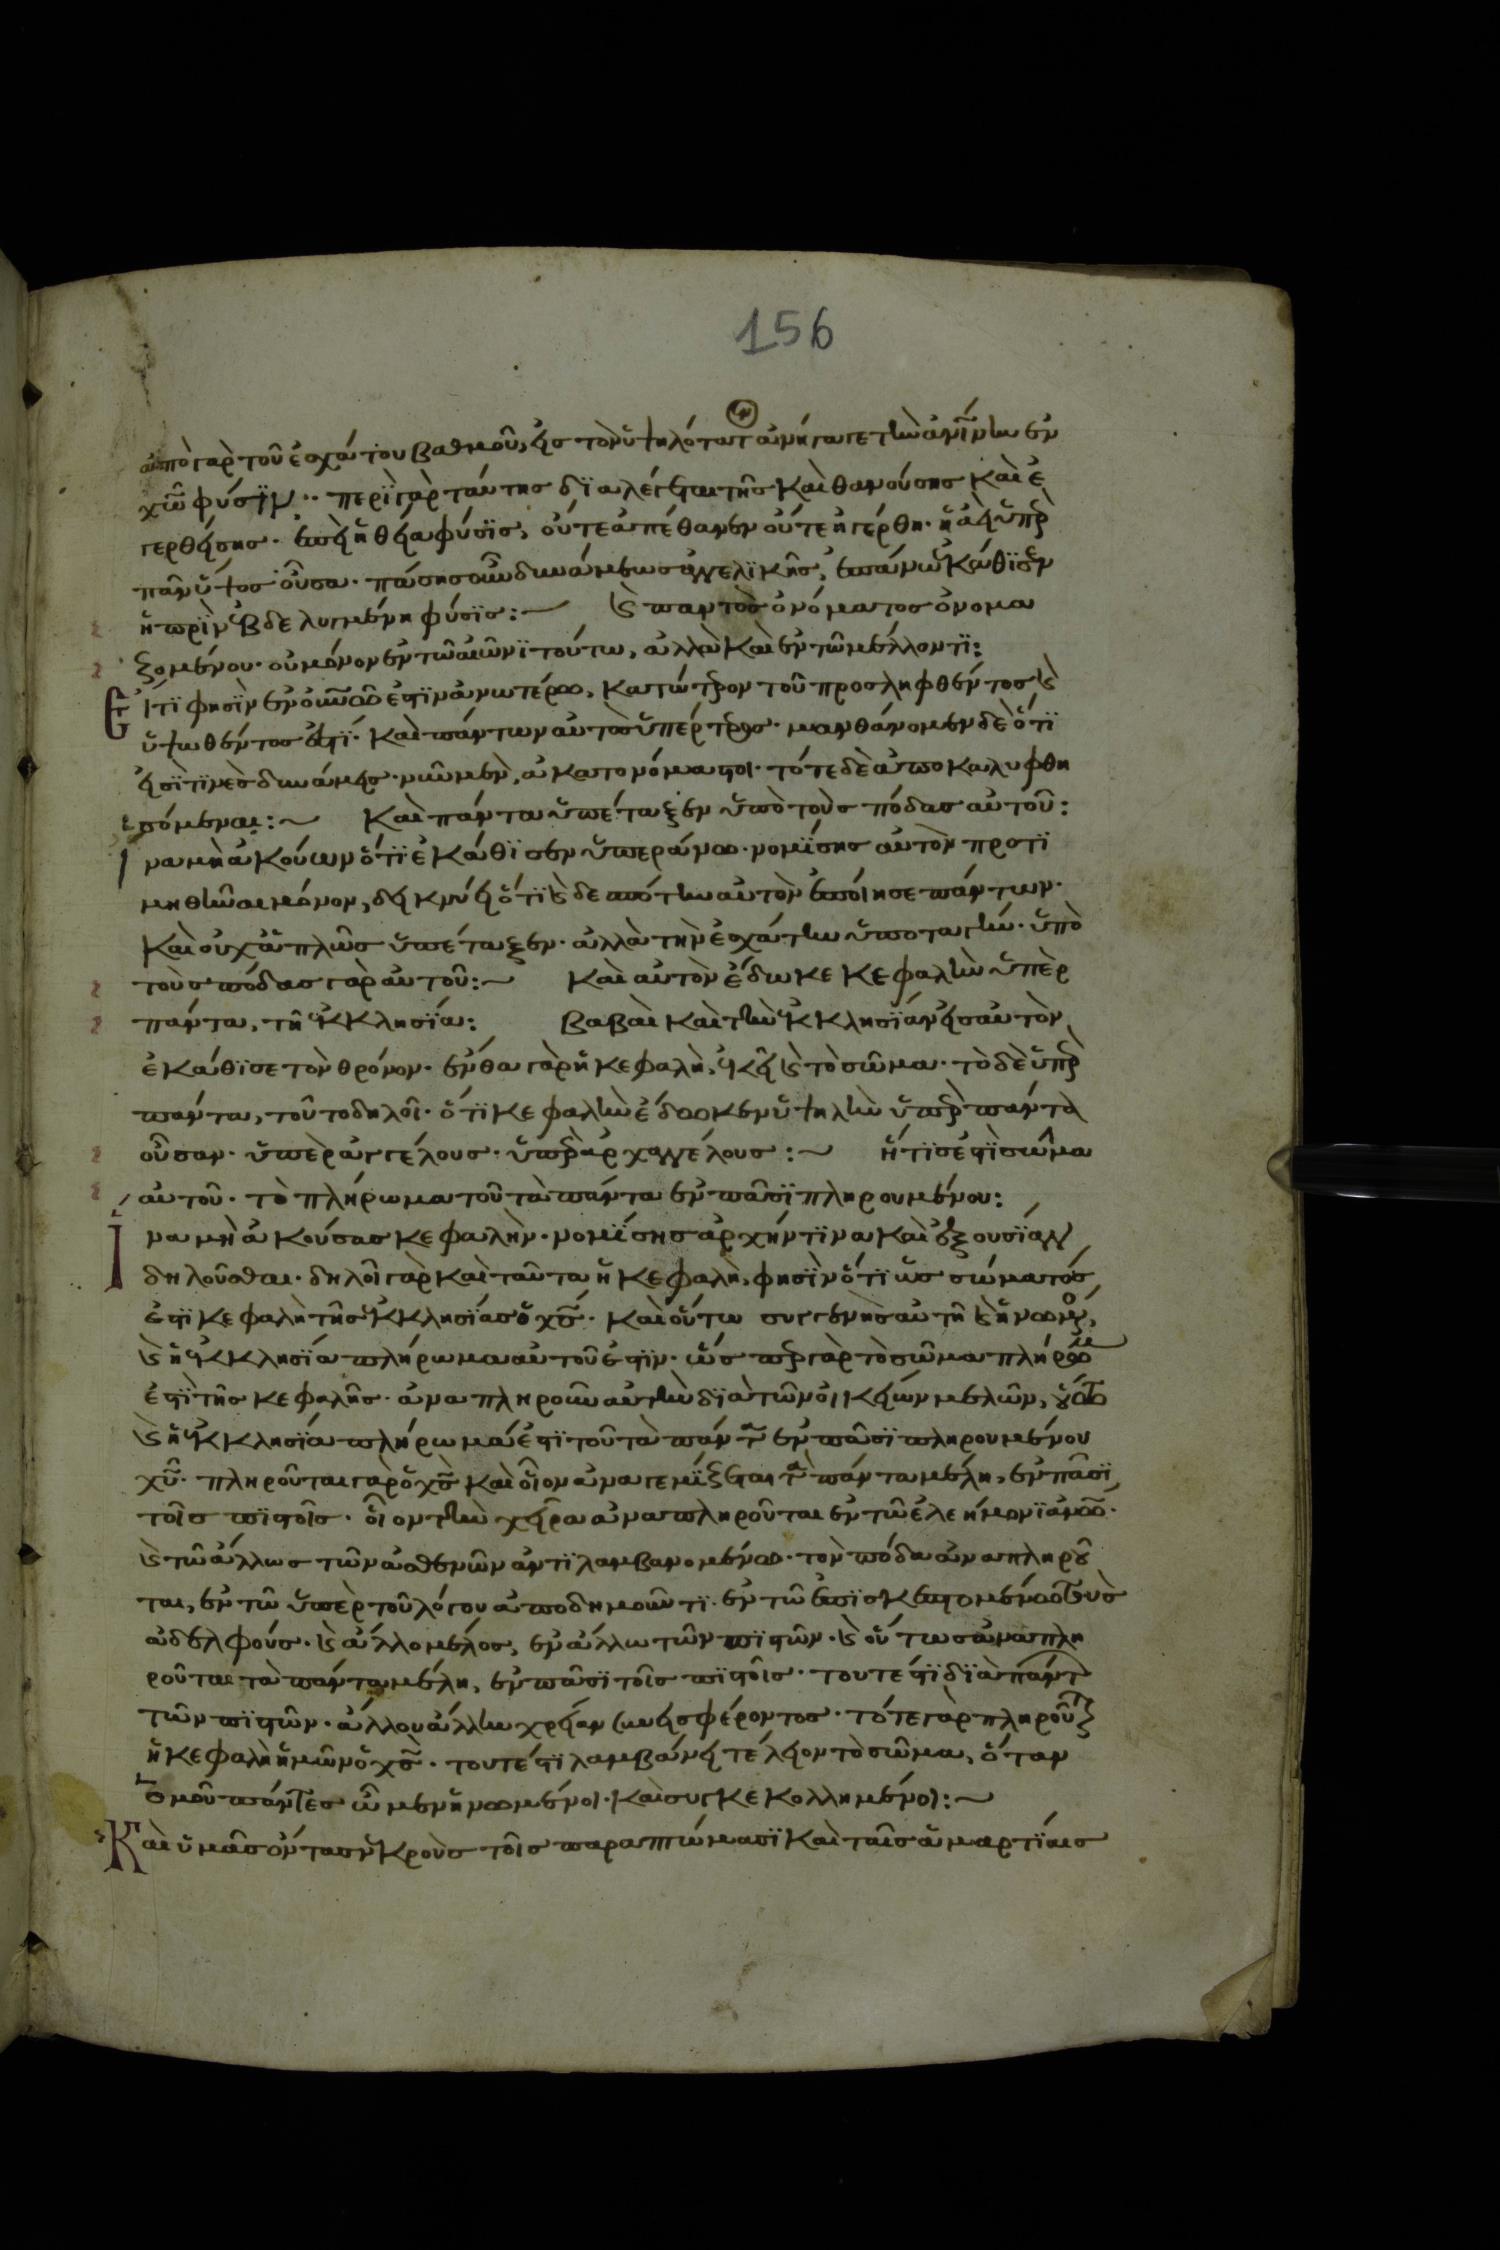 156
ἀπὸ γὰρ τοῦ ἐσχάτου βαθμοῦ, εἰς τὸν ὑψηλότατ ἀνήγαγε τὴν ἀνίνην ἐν
χῶ φύσϊν·· περὶ γὰρ ταύτης δϊαλέγεται τῆς καὶ θανούσης καὶ ἐ
γερθείσης· ἐπεὶ ἡ θεία φύσϊς, οὔτε ἀπέθανεν οὔτε ἠγέρθη· ἡ ἀεὶ ὑπὲρ
πᾶν ὕψος οὖσα· πάσης οὖν δυνάμεως ἀγγελϊκῆς, ἐπάνω ἐκάθϊσεν
ἡ πρὶν ἐβδελυγμένη φύσϊς:~ καὶ παντὸς ὀνόματος ὀνομα
ζομένου· οὐ μόνον ἐν τῶ αἰῶνϊ τούτω, ἀλλὰ καὶ ἐν τῶ μέλλοντϊ:
Εἴ τϊ φησὶν ἐν οὐνῶ ἐστὶν ἀνωτέρω, κατώτερον τοῦ προσληφθέντος καὶ
ὑψωθέντος ἐστϊ· καὶ πάντων αὐτὸς ὑπέρτερος· μανθάνομεν δὲ ὅτϊ
εἰσί τϊνὲς δυνάμεις· νῦν μὲν, ἀκατονόμαστοι· τότε δὲ ἀποκαλυφθη
σόμεναι:~ Καὶ πάντα ὑπέταξεν ὑπὸ τοὺς πόδας αὐτοῦ:
Ἵνα μὴ ἀκούων ὅτϊ ἐκάθϊσεν ὑπεράνω· νομίσης αὐτὸν προτϊ
μηθῆναι μόνον, δεικνύει ὅτϊ καὶ δεσπότην αὐτὸν ἐποίησε πάντων·
καὶ οὐχ ἁπλῶς ὑπέταξεν· ἀλλὰ τὴν ἐσχάτην ὑποταγήν· ὑπὸ
τοὺς πόδας γὰρ αὐτοῦ:~ Καὶ αὐτὸν ἔδωκε κεφαλὴν ὑπὲρ
πάντα, τῆ ἐκκλησϊα: Βαβαὶ καὶ τὴν ἐκκλησϊάν εἰς αὐτὸν
ἐκάθϊσε τὸν θρόνον· ἔνθα γὰρ ἡ κεφαλὴ, ἐκεῖ καὶ τὸ σῶμα· τὸ δὲ ὑπὲρ
πάντα, τοῦτο δηλοῖ· ὅτϊ κεφαλὴν ἔδωκεν ὑψηλὴν ὑπὲρ πάντα
οὖσαν· ὑπὲρ ἀγγέλους· ὑπὲρ ἀρχαγγέλους:~ ἥτϊς ἐστὶ σῶμα
αὐτοῦ· τὸ πλήρωμα τοῦ τὰ πάντα ἐν πᾶσϊ πληρουμένου:
Ἵνα μὴ ἀκούσας κεφαλὴν· νομίσης ἀρχήν τϊνα καὶ ἐξουσίαν
δηλοῦσθαι· δηλοῖ γὰρ καὶ ταῦτα ἡ κεφαλὴ, φησὶν ὅτϊ ὡς σώματός
ἐστϊ κεφαλὴ τῆς ἐκκλησίας ὁ χς· καὶ οὕτω συγγενὴς αὐτῆ καὶ ἡνωμενος,
καὶ ἡ ἐκκλησία πλήρωμα αὐτοῦ ἐστϊν· ὥσπερ γὰρ τὸ σῶμα πλήρωμα
ἐστὶ τῆς κεφαλῆς· ἀναπληροῦν αὐτὴν δϊὰ τῶν οἰκείων μελῶν, οὕτω
καὶ ἡ ἐκκλησϊα πλήρωμά ἐστϊ τοῦ τὰ πάντα ἐν πᾶσϊ πληρουμένου
χυ· πληροῦται γὰρ ὁ χς καὶ οἷον ἀναγεμίζεται τὰ πάντα μέλη, ἐν πᾶσϊ
τοῖς πϊστοῖς· οἷον τὴν χεῖρα ἀναπληροῦται ἐν τῶ ἐλεήμονϊ ἀνω·
καὶ τῶ ἄλλως τῶν ἀσθενῶν ἀντϊλαμβανομένω· τὸν πόδα ἀναπληροῦ
ται, ἐν τῶ ὑπὲρ τοῦ λόγου ἀποδημοῦντϊ· ἐν τῶ ἐπϊσκεπτομένω τοὺς
ἀδελφούς· καὶ ἄλλο μέλος, ἐν ἄλλω τῶν πϊστῶν· καὶ οὕτως ἀναπλη
ροῦται τὰ πάντα μέλη, ἐν πᾶσϊ τοῖς πϊστοῖς· τουτέστϊ δϊὰ πάντων
τῶν πϊστῶν· ἄλλου ἄλλην χρείαν συνεισφέροντος· τότε γὰρ πληροῦται
ἡ κεφαλὴ ἡμῶν ὁ χς· τουτέστϊ λαμβάνει τέλειον τὸ σῶμα, ὅταν
ὁμοῦ πάντες ὦμεν ἡνωμένοι· καὶ συγκεκολλημένοι:~
Καὶ ὑμᾶς ὄντας νεκροὺς τοῖς παραπτώμασϊ καὶ ταῖς ἁμαρτϊαις